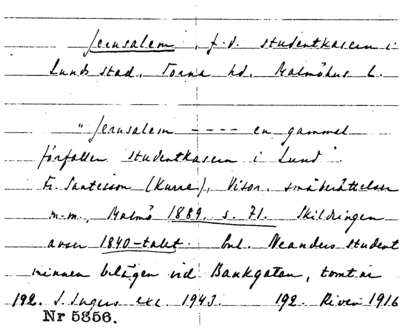 Jerusalem, f.d. studentkasern i
Lunds stad, Torna hd, Malmöhus l.
"Jerusalem ---- en gammal
förfallen studentkasern i Lund".
Fr. Santesson (Kurre), Visor, småberättelser
m.m., Malmö 1889. s. 71. Skildringen
avser 1840-talet. Enl. Neanders student
minnen belägen vid Bankgatan, tomt nr
192. S. Ingers exc. 1943. 192. Riven 1916
Nr 5356.